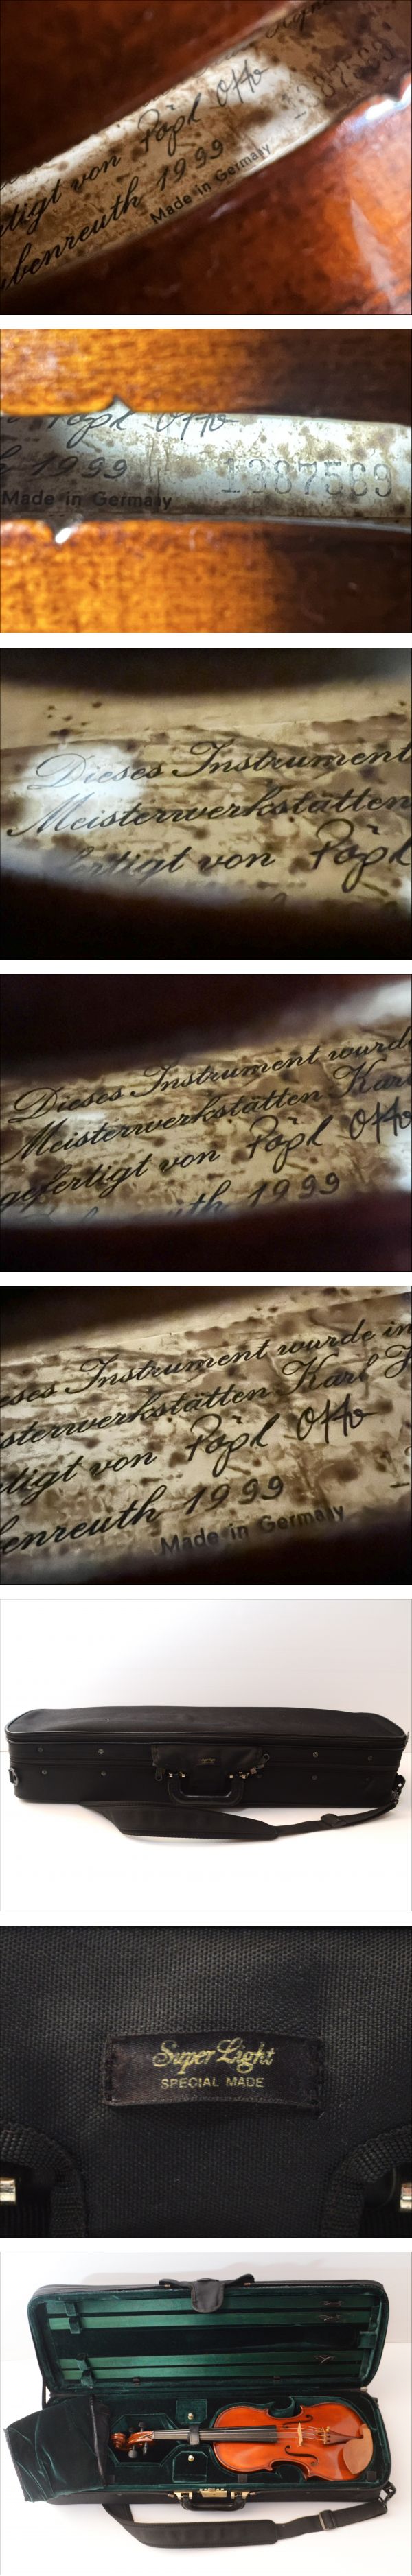 tigt von Pöpl Otto
benreuth 1999
Made in Germany
Pöpl Otto
1999
Made in Germany
1387569
Dieses Instrument
Meisterwerkstätten
fertigt von Pöpl
Dieses Instrument wurde
Meisterwerkstätten Karl
gefertigt von Pöpl Otto
uth 1999
eses Instrument wurde in
sterwerkstätten Karl
tigt von Pöpl Otto
enreuth 1999
Made in Germany
Super Light
SPECIAL MADE